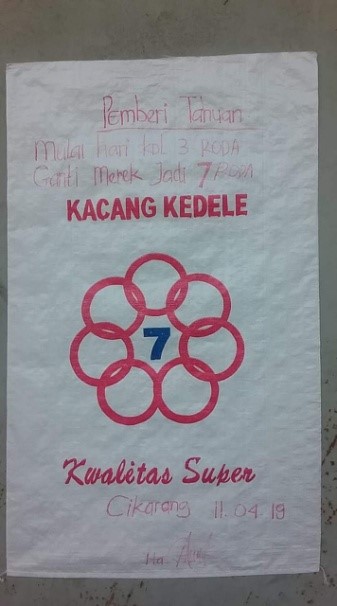 Pemberi Tahuan
Mulai hari
3 RODA
Ganti Merek Jadi 7 RODA
KACANG KEDELE
7
Kwalitas Super
Cikarang 11.04.19